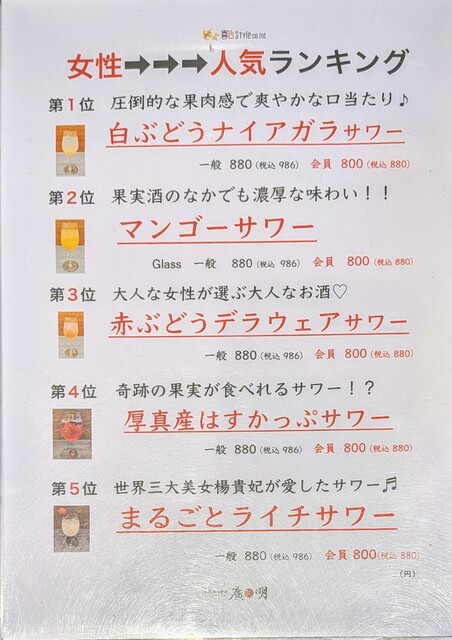 喜色Style
女性➡➡➡人気ランキング
第1位 圧倒的な果肉感で爽やかな口当たり♪
白ぶどうナイアガラサワー
一般 880(税込 986) 会員 800(税込 880)
第2位 果実酒のなかでも濃厚な味わい！！
マンゴーサワー
Glass 一般 880(税込 986) 会員 800(税込 880)
第3位 大人な女性が選ぶ大人なお酒♡
赤ぶどうデラウェアサワー
一般 880(税込 986) 会員 800(税込 880)
第4位 奇跡の果実が食べれるサワー！？
厚真産はすかっぷサワー
一般 880(税込 986) 会員 800(税込 880)
第5位 世界三大美女楊貴妃が愛したサワー♬
まるごとライチサワー
一般 880(税込 986) 会員 800(税込 880)
(円)